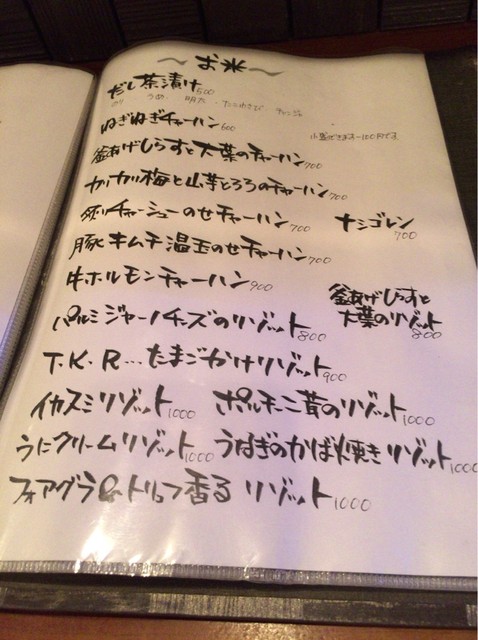 〜お米〜
だし茶漬け500
のり うめ 明太 たこわさび
ねぎねぎチャーハン600
小盛できます-100円です
釜あげしらすと大葉のチャーハン700
カリカリ梅と山芋とろろのチャーハン700
炙りチャーシューのせチャーハン700 ナシゴレン700
豚キムチ温玉のせチャーハン700
牛ホルモンチャーハン900
釜あげしらすと
大葉のリゾット800
パルミジャーノチーズのリゾット800
T.K.R...たまごかけリゾット900
イカスミリゾット1000 ポルチーニ茸のリゾット1000
うにクリームリゾット1000 うなぎのかば焼きリゾット1000
フォアグラ&トリュフ香る リゾット1000